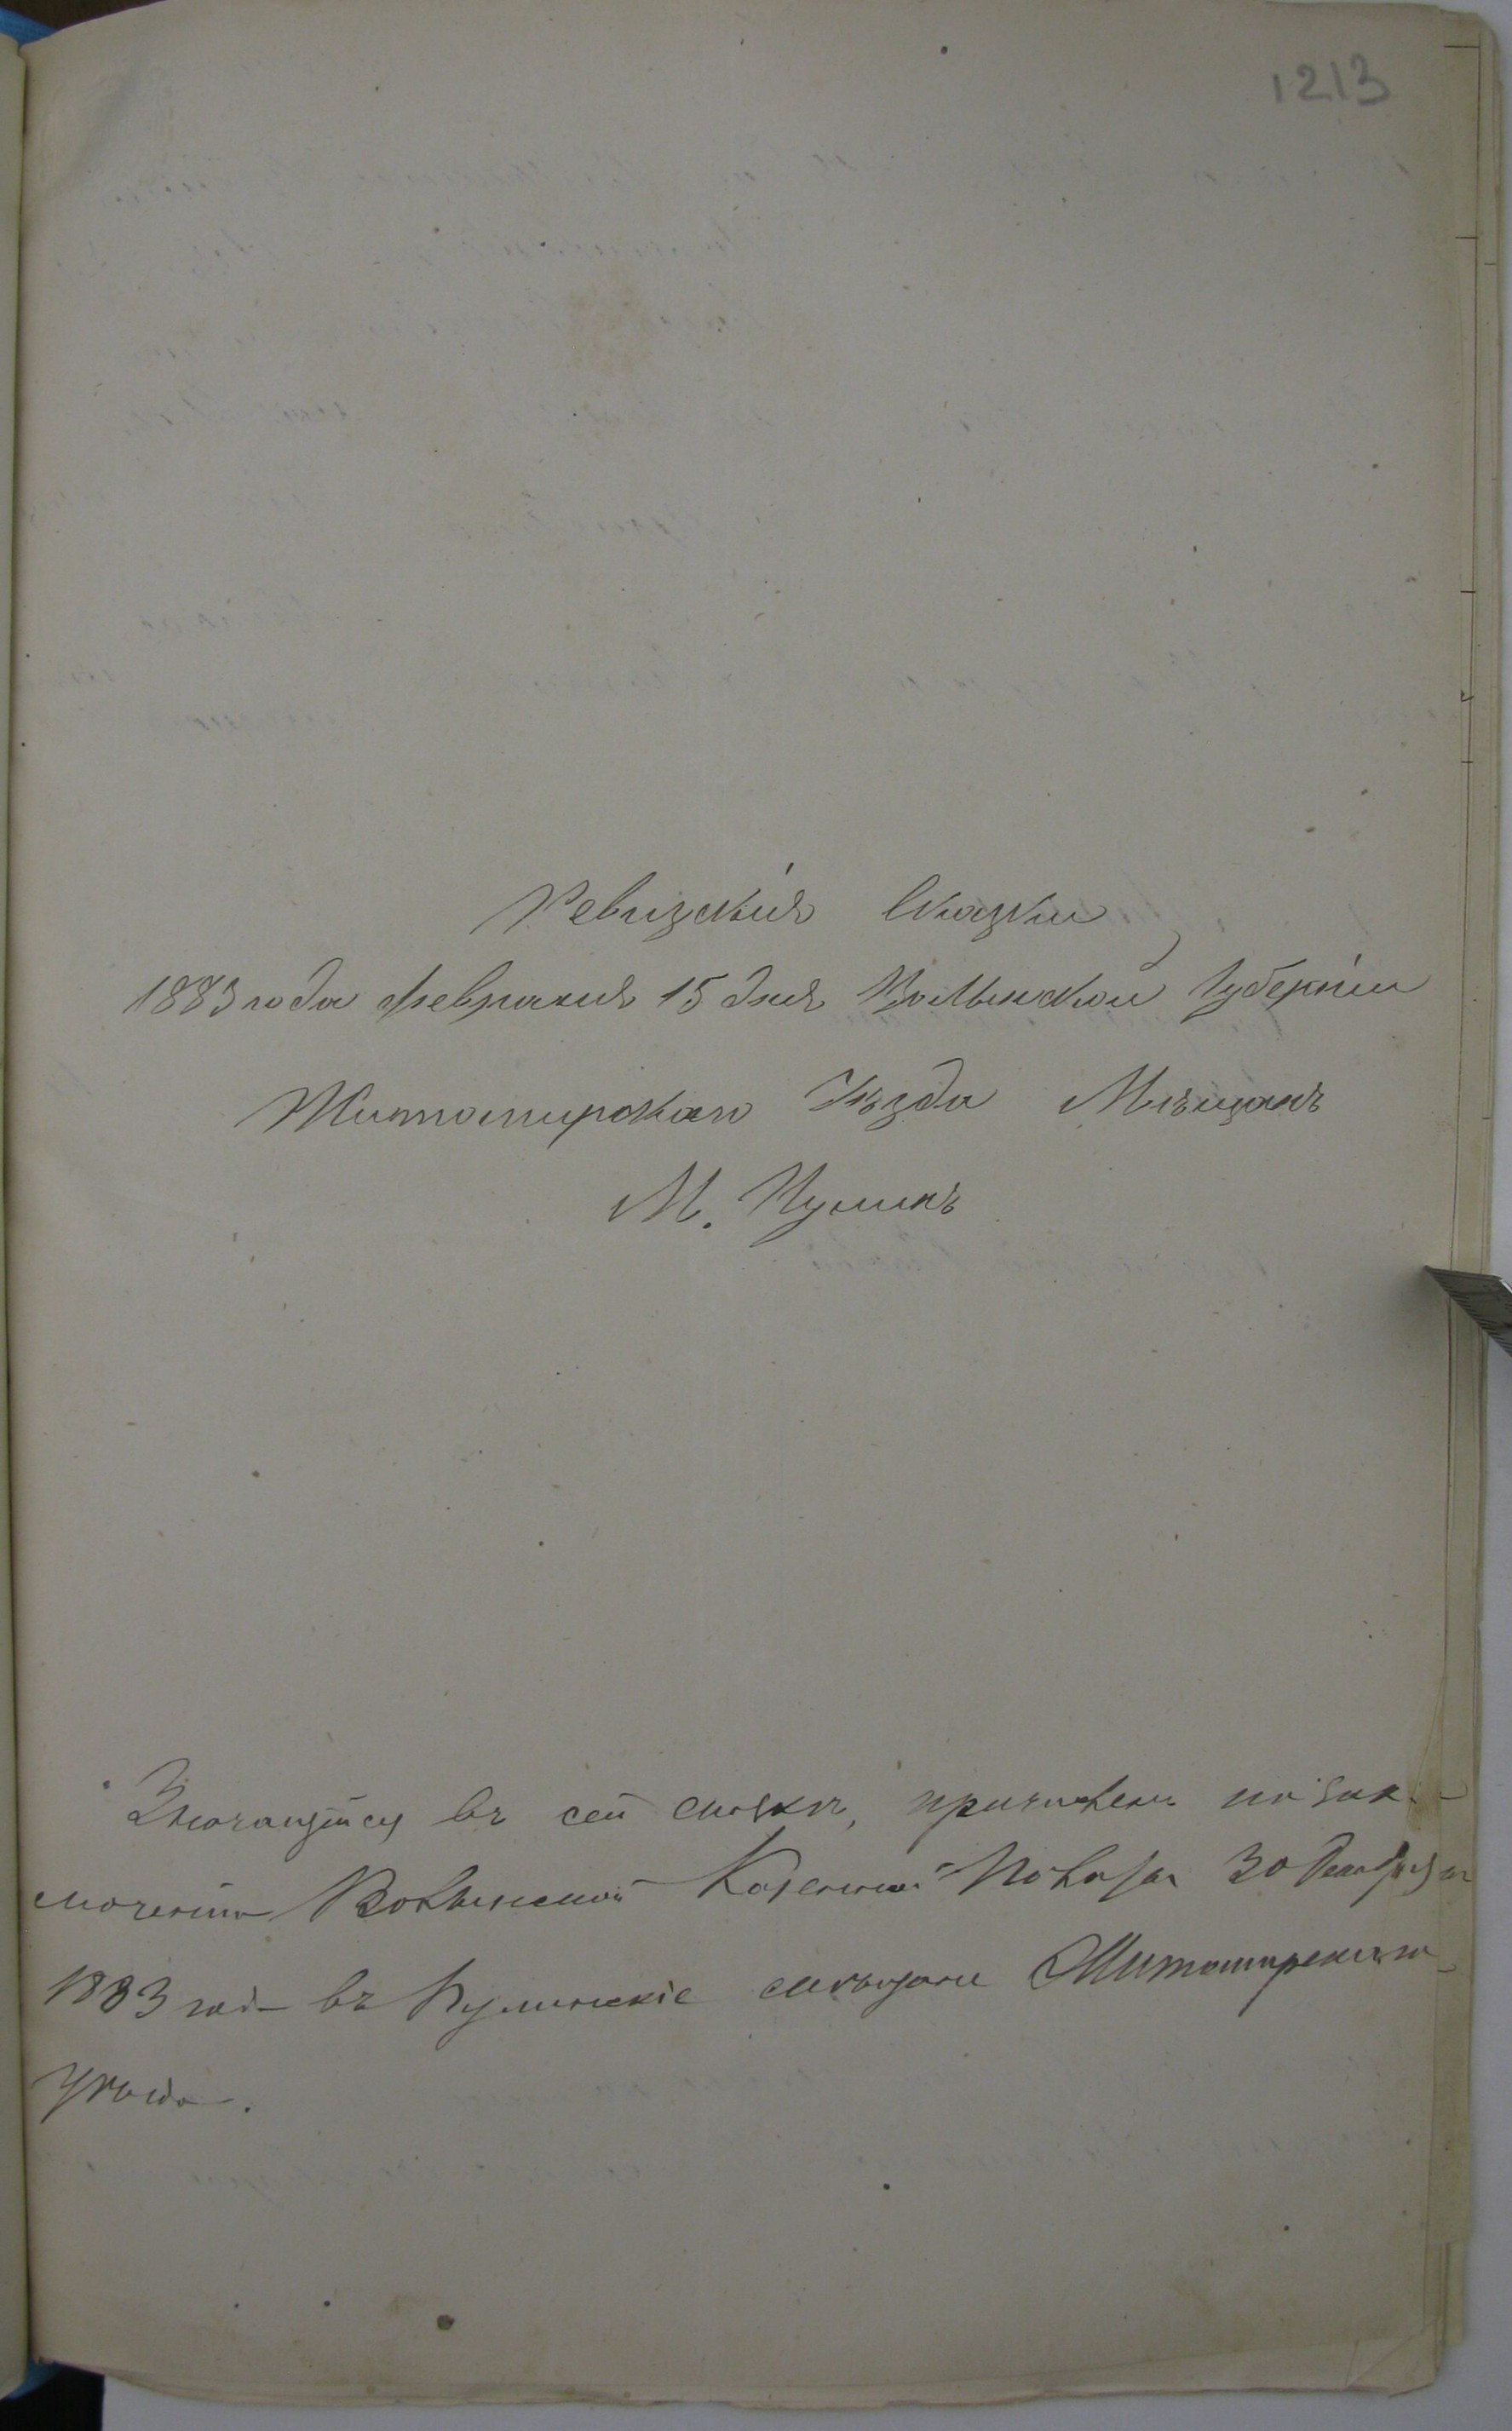 1213
Ревизскія Сказки
1883 года февраля 15 дня Волынской Губерніи
Житомирскаго Уѣзда Мѣщанъ
М. Пулинъ
Значащійся въ сей сказкѣ, причисленъ по зак-
люченію Волынской Казенной Палаты 30 Декабря
1883 года въ Пулинскіе мѣщане Житомирскаго
Уѣзда.